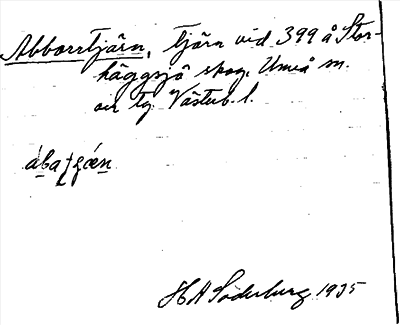 Abborrtjärn, tjärn vid 399 å Stor-
häggsjö skog. Umeå sn.
och tg Västerb. l.
H A Söderburg 1935